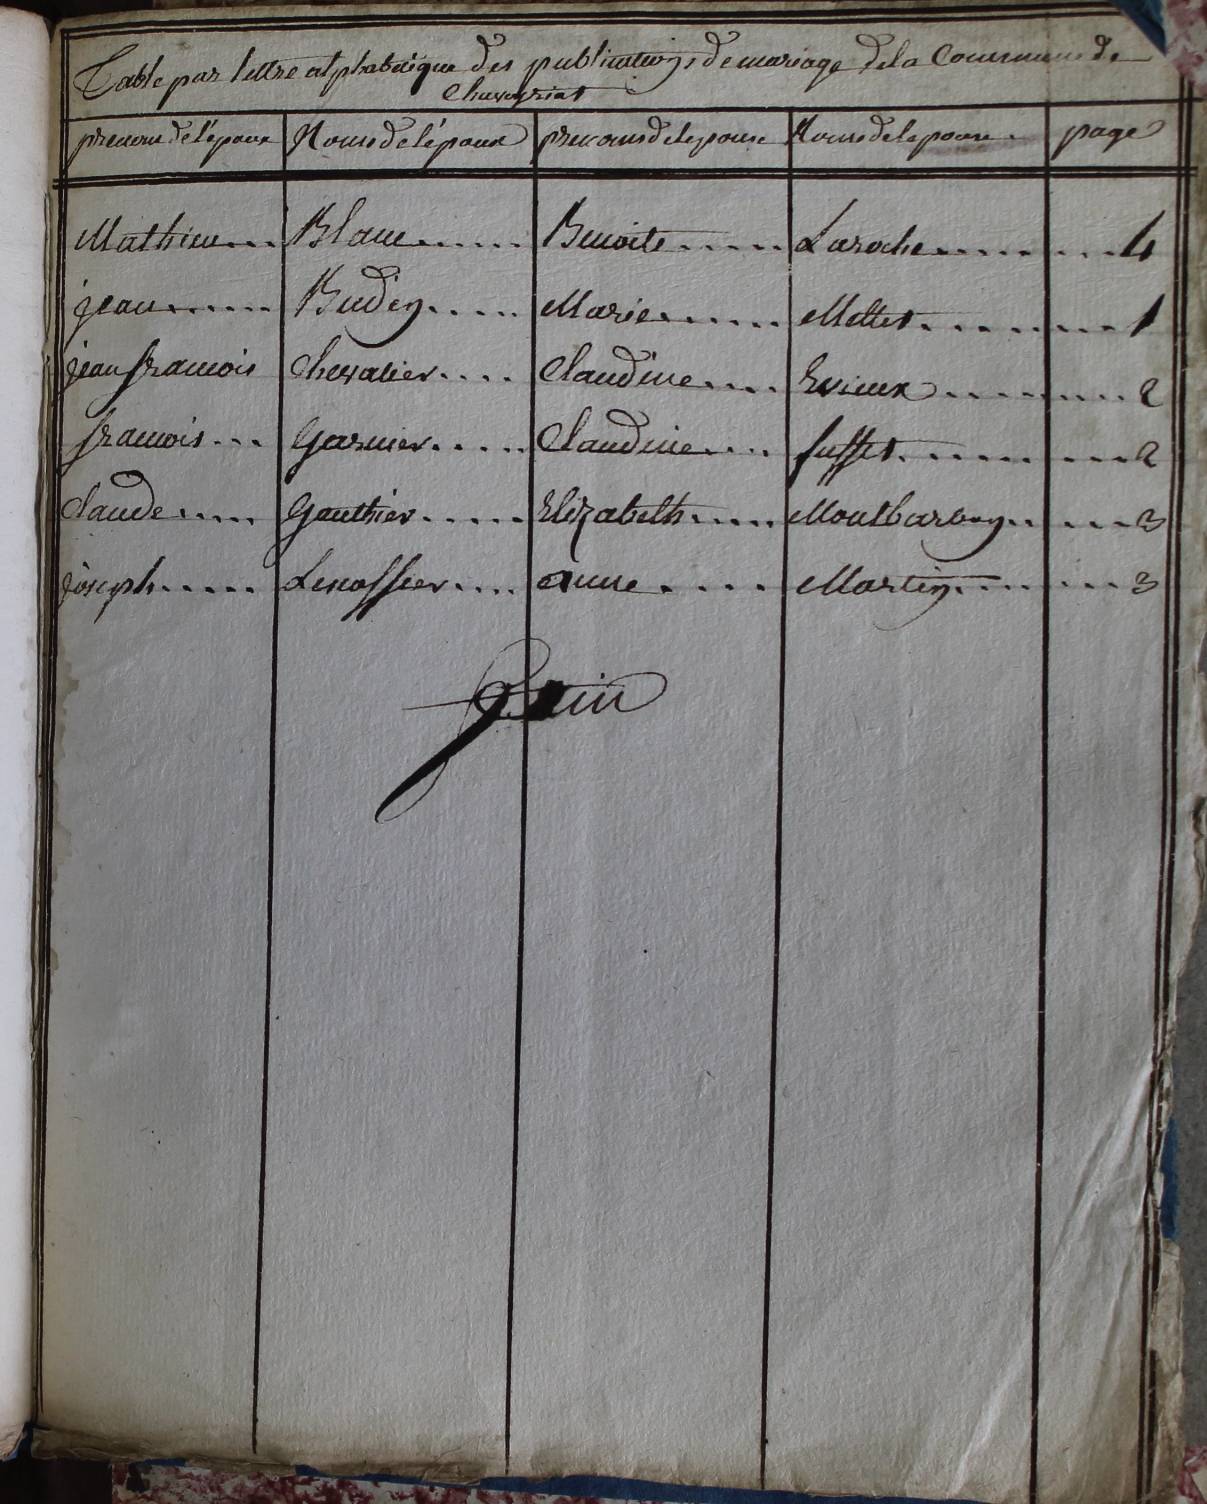 Table par lettre alphabetique des publications de mariage de la Commune de
Chaveyriat
prenom de l'époux Noms de l'époux prenoms de lepouse Noms de lepouse page
Mathieu Blanc Benoite Laroche 4
jean Budin Marie Mettet 1
jean françois Chevalier Claudine Evieux 2
françois Garnier Claudine fusset 2
Claude Gauthier Elizabeth Montbarbon 3
joseph Lenossier anne Martin 3